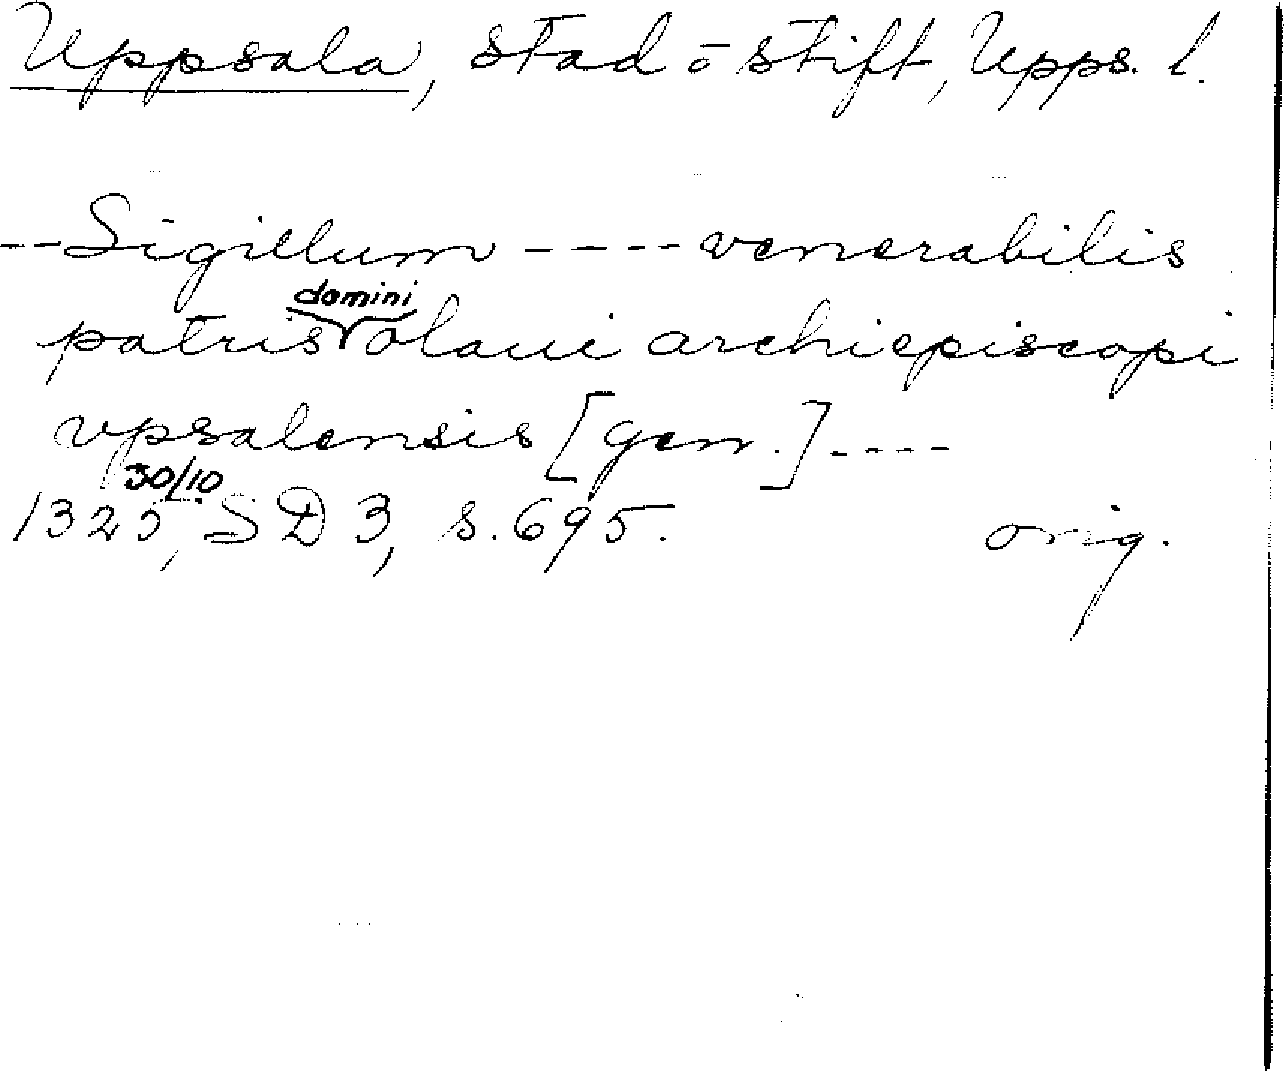 Uppsala, stad o stift, Upps. l.
-- Sigillum ---- venerabilis
domini
patris olaui archiepiscopi
vpsalensis [gen.] ----
30/10
1325, SD 3, s. 695. orig.